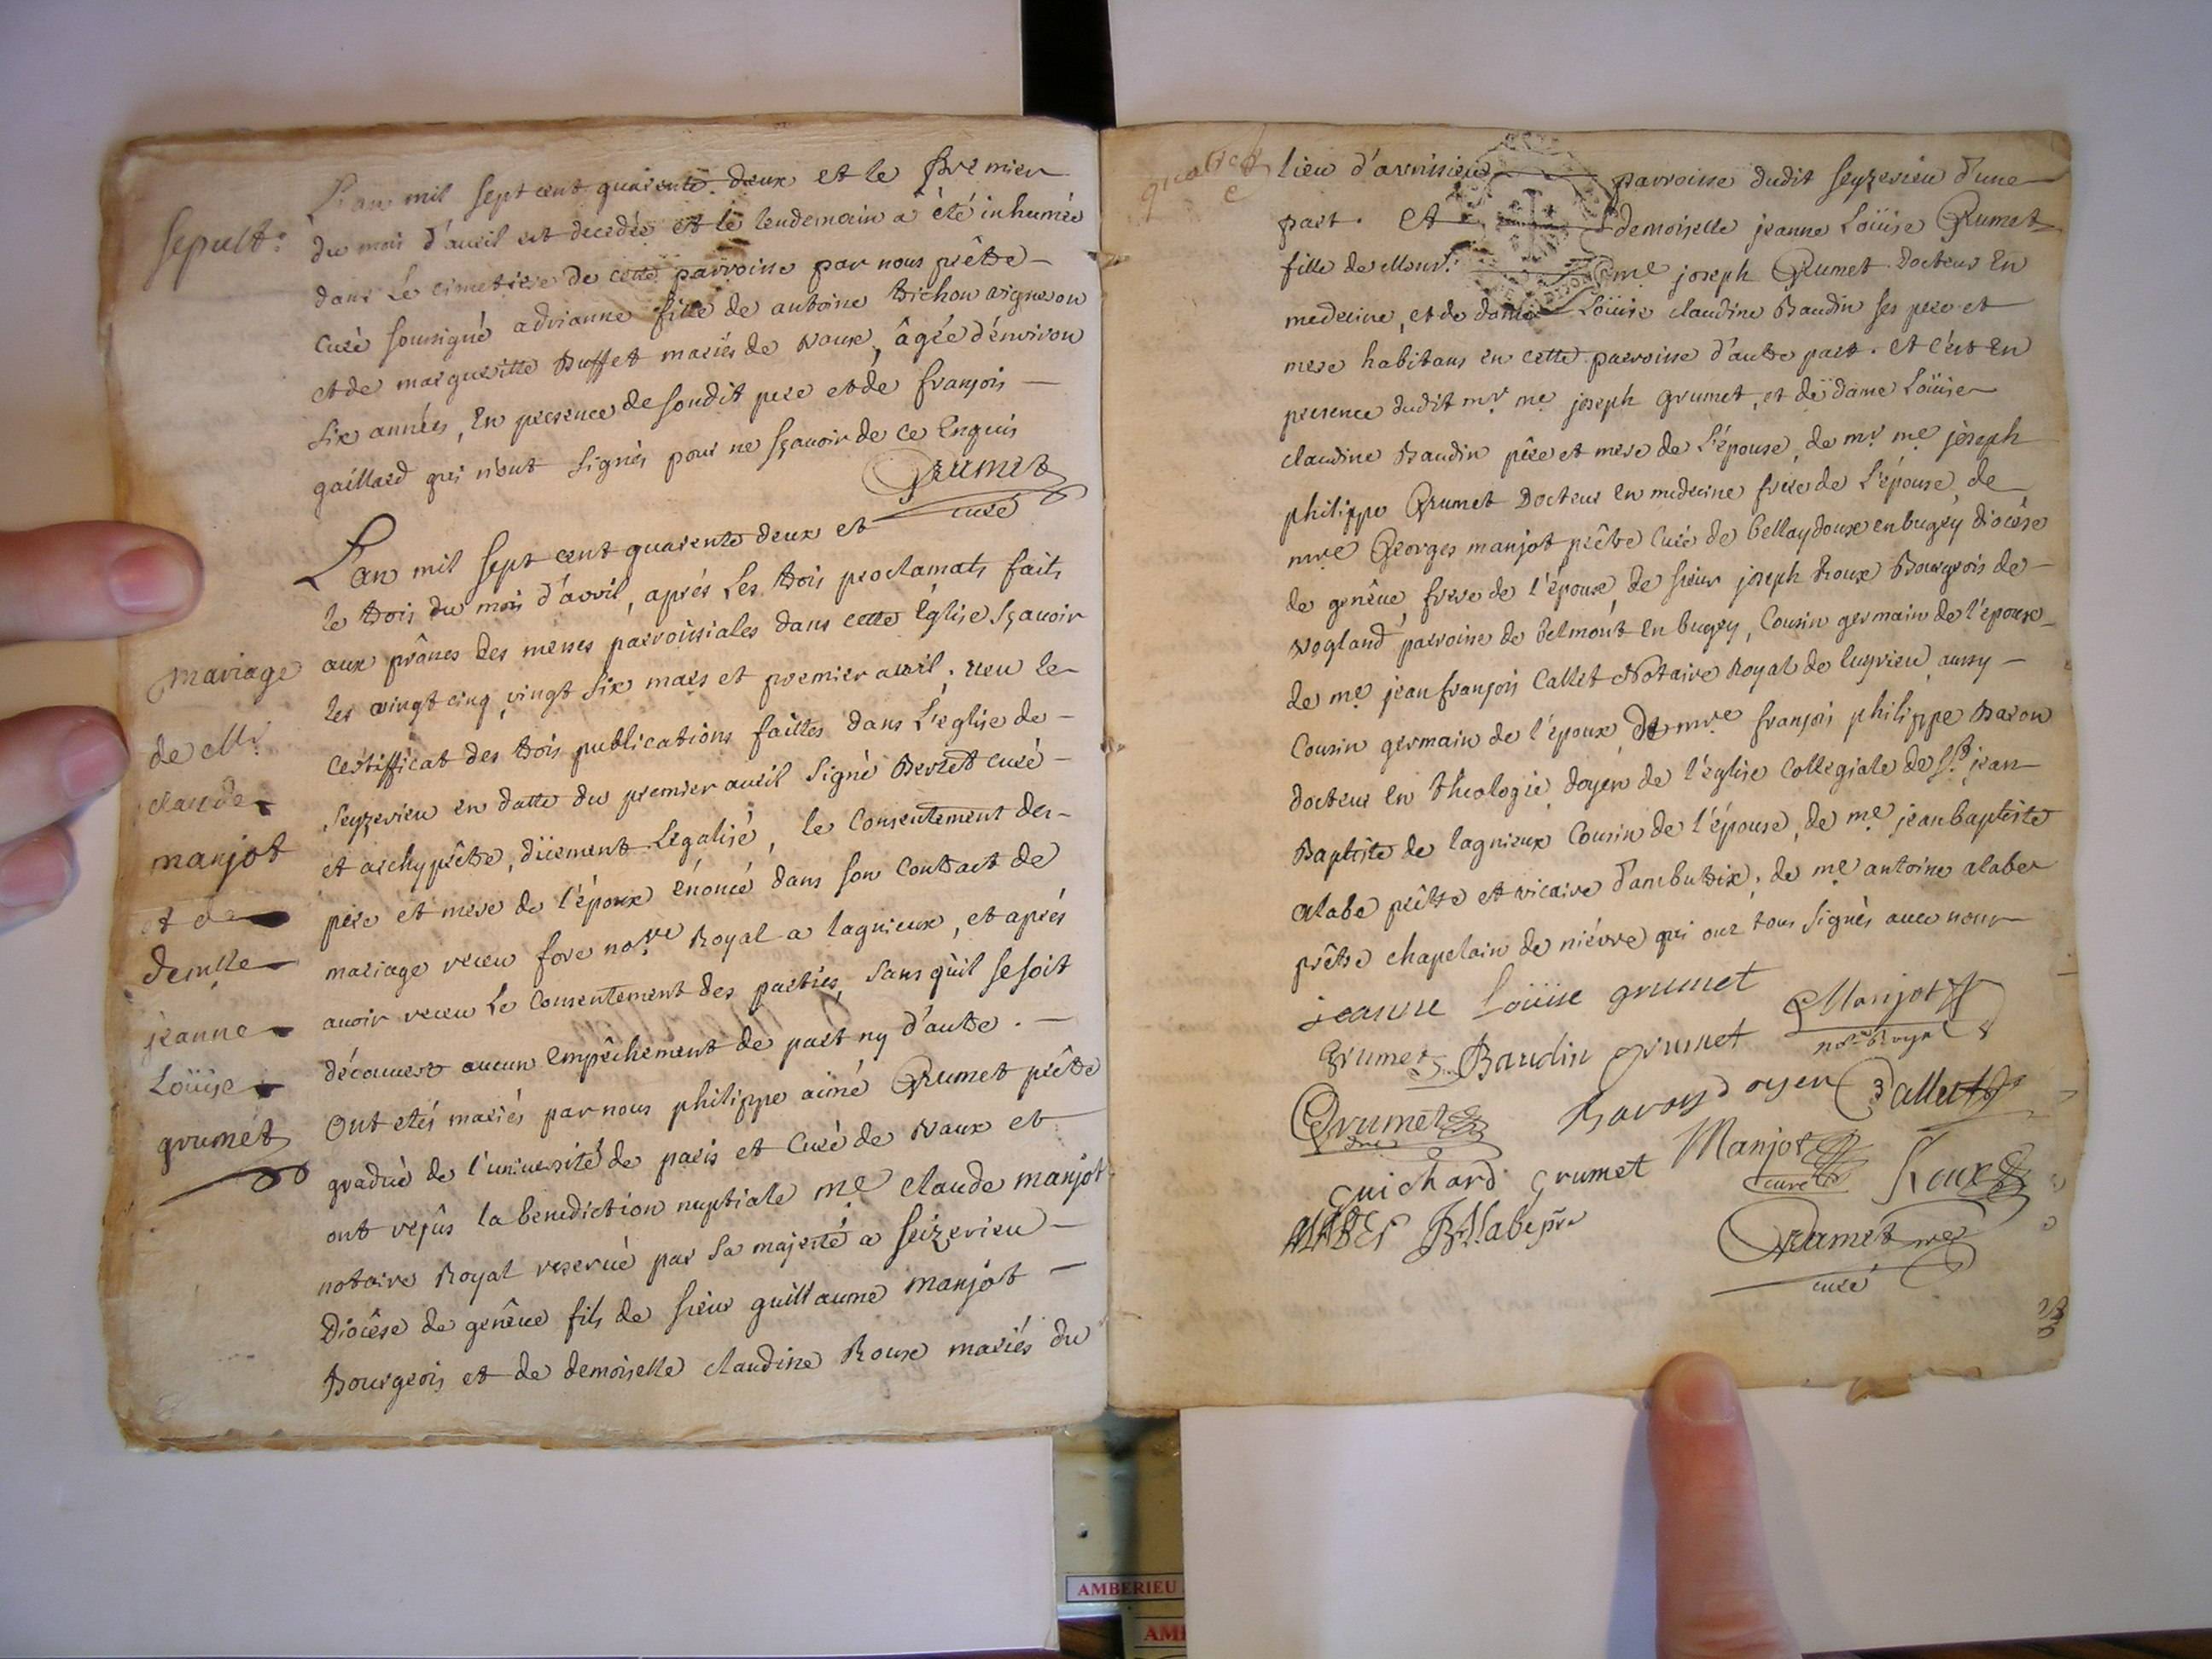 sepult:
L'an mil sept cent quarente deux et le premier
du mois d'avril est decedée et le lendemain a été inhumée
dans le cimetiere de cette parroisse par nous prêtre
curé soussigné adrianne fille de antoine trichon vigneron
et de margueritte Buffet mariés de vaux, âgée d'environ
six années, en presence de sondit pere et de françois
gaillard qui n'ont signés pour ne sçavoir de ce enquis
Grumet
curé
mariage
de Mr
claude
manjot
et de
demlle
jeanne
Loüise
grumet
L'an mil sept cent quarente deux et
le trois du mois d'avril, aprés les trois proclamats faits
aux prônes des messes parroissiales dans cette église sçavoir
les vingt cinq, vingt six mars et premier avril; veu le
certifficat des trois publications faittes dans l'eglise de
seyzerieu en datte du premier avril signé Bertet curé
et archyprêtre, düement legalisé, le consentement des
père et mere de l'époux énoncé dans son contract de
mariage receu fore nore Royal a lagnieux, et aprés
avoir receu le consentement des parties, sans qu'il se soit
découvert aucun empêchement de part ny d'autre.
Ont etés mariés par nous philippe aimé Grumet prêtre
gradué de l'université de paris et curé de vaux et
ont reçûs la benediction nuptiale me claude manjot
notaire Royal reservé par sa majesté a seizerieu
Diocése de genêve fils de sieur guillaume manjot
Bourgeois et de demoiselle claudine Roux mariés du
lieu d'avrissieu parroisse dudit seyzerieu d'une
part. Et demoiselle jeanne Loüise Grumet
fille de Monsr. me joseph Grumet Docteur En
medecine, et de dame Loüise claudine Baudin ses pere et
mere habitans en cette parroisse d'autre part. et c'est En
presence dudit mr me joseph grumet, et de dame Loüise
claudine Baudin père et mere de l'épouse, de mr me joseph
philippe Grumet Docteur En medecine frere de l'épouse, de
mre Georges manjot prêtre curé de bellaydoux en bugey diocése
de genêve, frere de l'époux, de sieur joseph Roux Bourgeois de
vogland parroisse de belmont En bugey, cousin germain de l'epoux
de me jean françois Callet Notaire Royal de luyrieu aussy
cousin germain de l'époux de mre françois philippe Baron
docteur en theologie, doyen de l'église collegiale de St jean
Baptiste de lagnieux cousin de l'épouse, de me jean baptiste
alabe prêtre et vicaire d'ambutrix; de me antoine alabe
prêtre chapelain de niévre qui ont tous signés avec nous
jeanne Loüise grumet
Manjot
Grumet Baudin grumet
Grumet
Baron doyen
Callet
guichard grumet
Manjot
curé
Roux
Grumet
curé
AMBERIEU